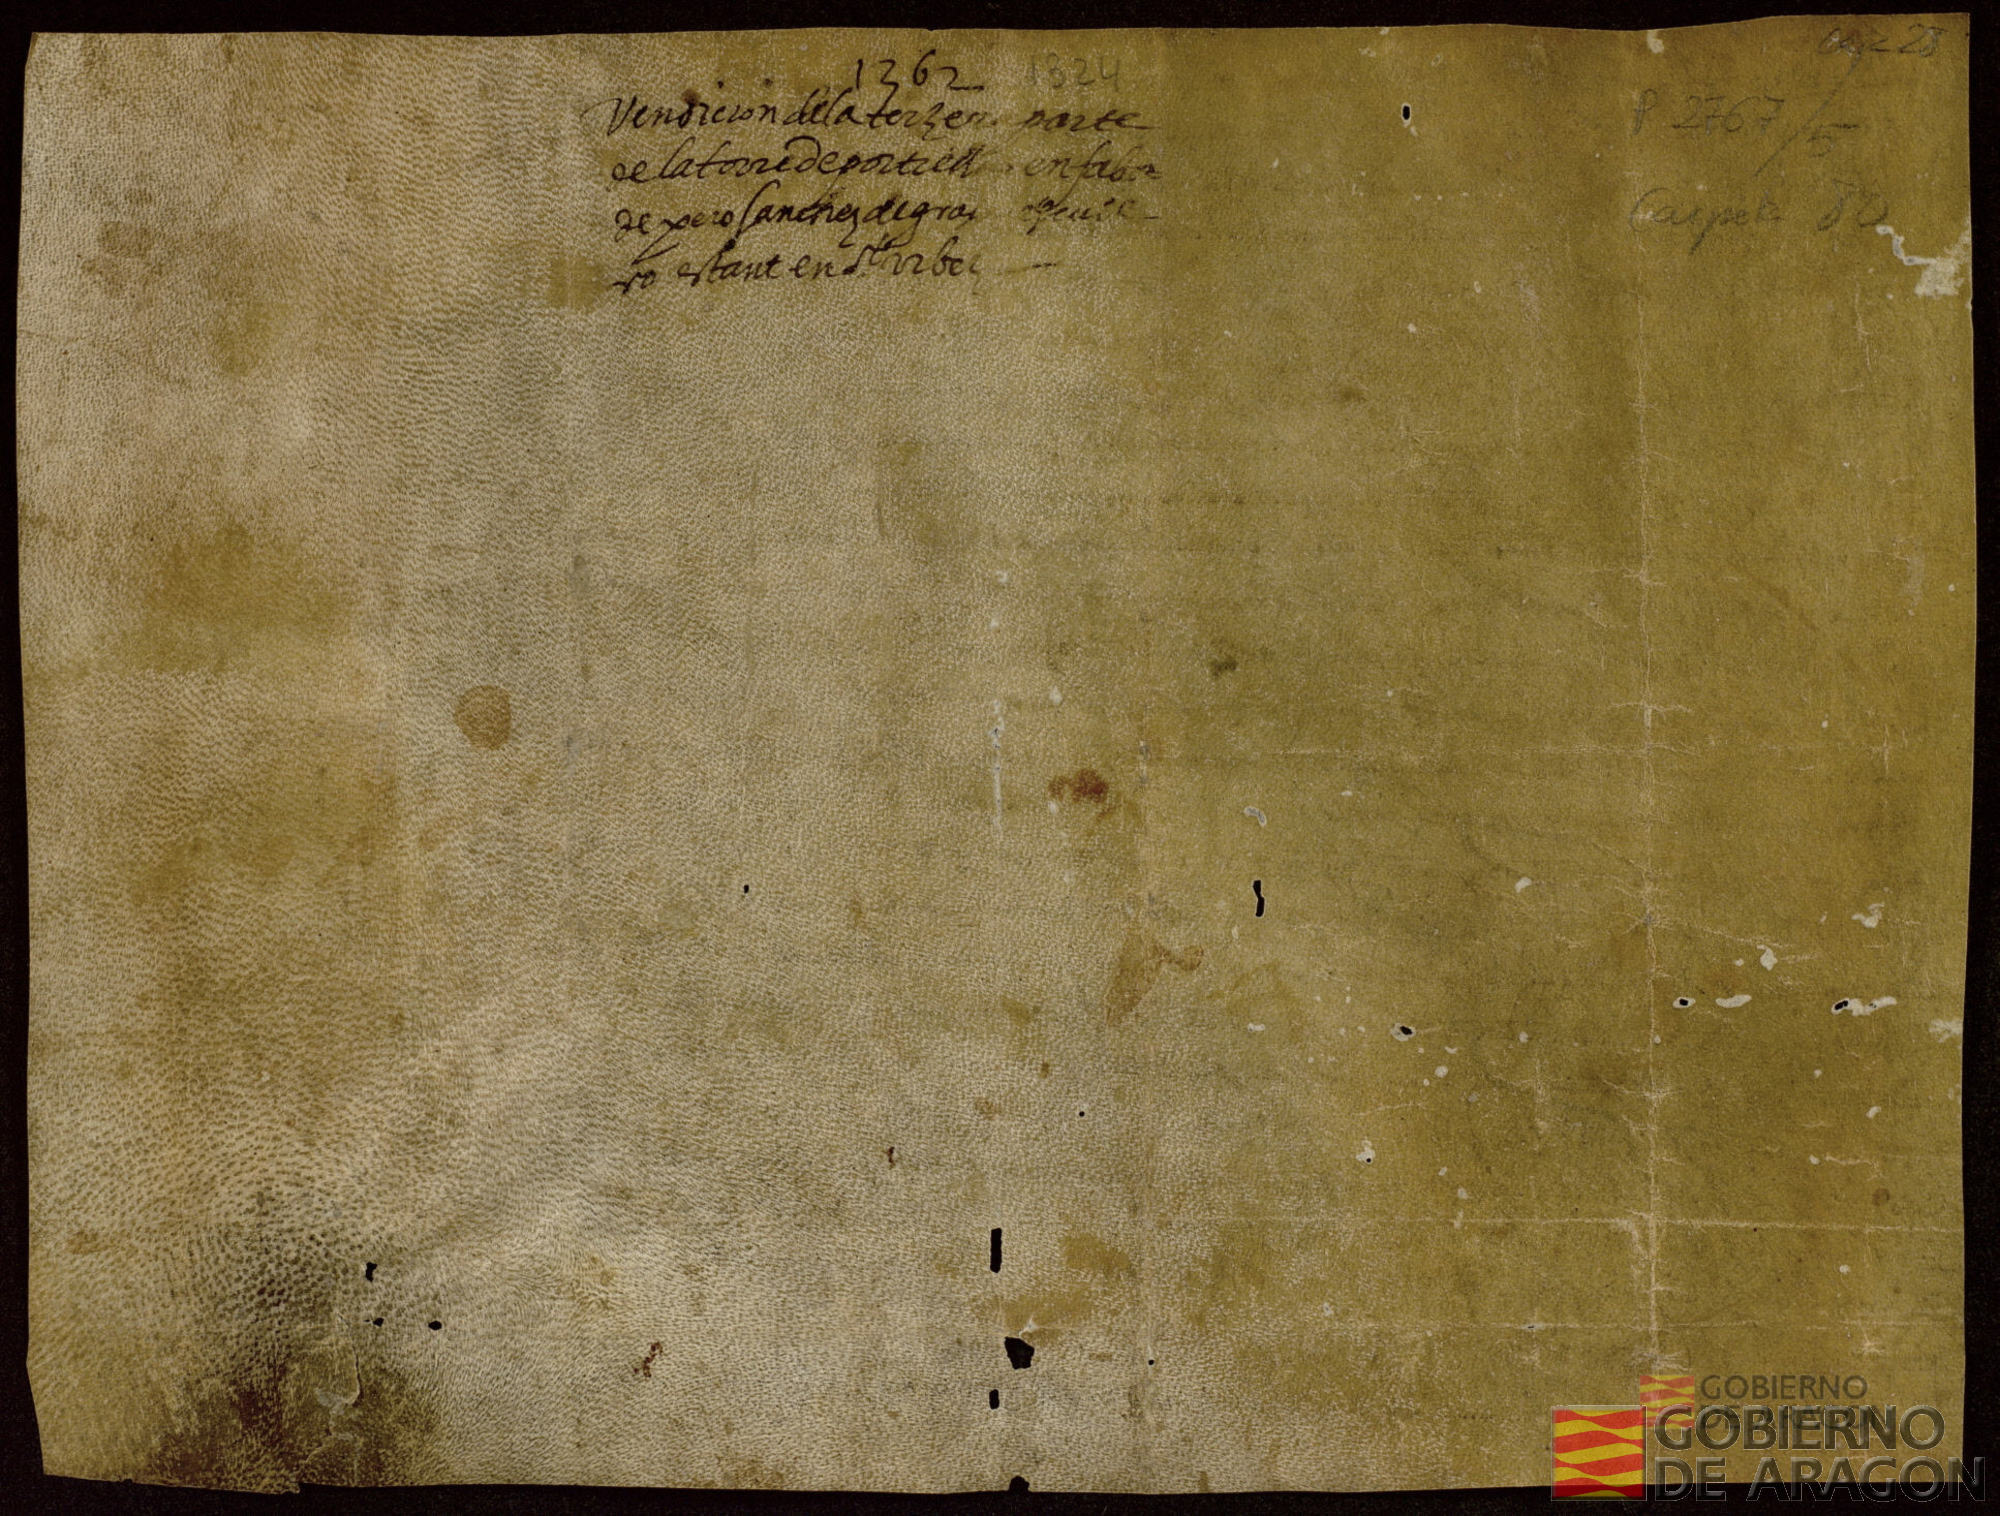 1362 1324
Vendicion de la terzera parte
de la torre de portiella en fabor
de pero Sanchez de gra
ro estant en Sta
P 2767/5
Carpeta 80
28
GOBIERNO
GOBIERNO
DE ARAGON